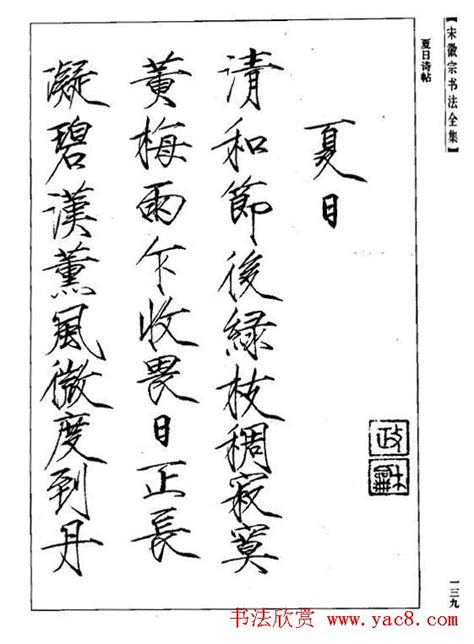 【宋徽宗书法全集】
夏日诗帖
一三九
夏日
清和節後緑枝稠寂寞
黄梅雨乍收畏日正長
凝碧漢薰風微度到丹
政龢
书法欣赏 www.yac8.com